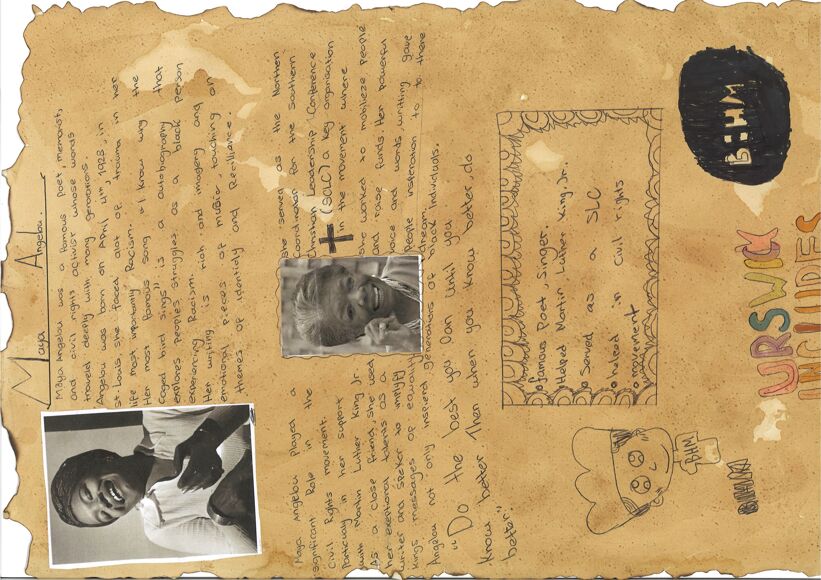 Maya Angelou
Maya Angelou was a famous Poet, memorist,
and civil rights activist whose words
traveld deeply with many genorations.
Angelou was born on April 4th, 1928, in
St. Louis, she faced alot of trauma in her
life most importantly Racism.
Her most famous song "I Know why the
Caged bird sings" is a autobiography that
explores peoples struggles as a black person
experiencing Racism.
Her writing is rich and imagery and
emotional pieces of music, touching on
themes of identidy and Recilliance.
Maya Angelou Played a
significant Role in the
"Civil Rights movement.
Particuly in her support
with Martin Luther King Jr
As a close friend, she used
her exeptional talents as a
writer and speker to
Kings messages of equality
Angelou not only inspierd generations of black individuals.
she served as the Northen
Coordinator for the Southern
Christian Leadership Conference
(SCLC) a key organisation
in the movement where
she worked to mobilieze people
and raise funds. Her powerful
voice and words writting gave
People insperation to to there
dream.
"Do the best you can until you
know better. Then when you know better, do
better".
famous Poet, Singer.
Helped Martin Luther King Jr.
Served as a SLC
helped in civil rights
movement
BHM
BHM
URSWICK
INCLUDES